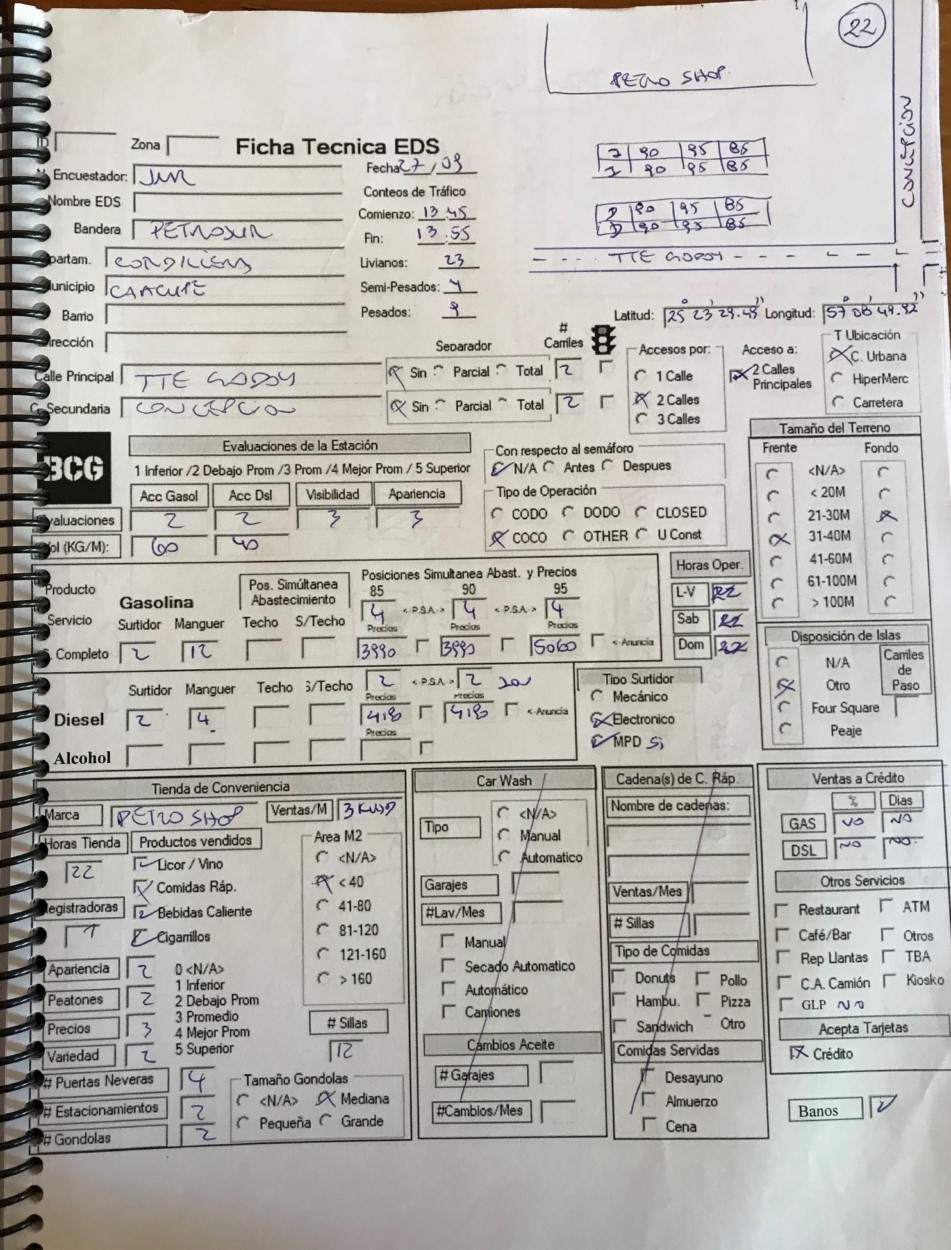 22
PETRO SHOP.
CONCEPCION
2 | 90 | 95 | 85
1 | 90 | 95 | 85
D | 90 | 95 | 85
D | 90 | 95 | 85
TTE GODOY
ID Zona Ficha Tecnica EDS
Encuestador: JMR
Fecha 27/09
Nombre EDS
Conteos de Tráfico
Bandera PETROSUR
Comienzo: 13:45
Fin: 13:55
Departam. CORDILLERA
Livianos: 23
Municipio CAACUPE
Semi-Pesados: 4
Barrio
Pesados: 9
Dirección
Latitud: 25° 23' 29.48" Longitud: 57° 08' 49.92"
Calle Principal TTE GODOY
C. Secundaria CONCEPCION
Separador # Carriles
Sin Parcial Total 2
Sin Parcial Total 2
Accesos por:
1 Calle
2 Calles
3 Calles
Acceso a:
2 Calles Principales
T Ubicación
C. Urbana
HiperMerc
Carretera
BCG
Evaluaciones de la Estación
1 Inferior /2 Debajo Prom /3 Prom /4 Mejor Prom / 5 Superior
Acc Gasol Acc Dsl Visibilidad Apariencia
Evaluaciones 2 2 3 3
Vol (KG/M): 60 40
Con respecto al semáforo
N/A Antes Despues
Tipo de Operación
CODO DODO CLOSED
COCO OTHER U Const
Tamaño del Terreno
Frente Fondo
<N/A>
< 20M
21-30M
31-40M
41-60M
61-100M
> 100M
Producto
Servicio
Gasolina
Pos. Simúltanea Abastecimiento
Posiciones Simultanea Abast. y Precios
85 90 95
4 <-P.S.A.-> 4 <-P.S.A.-> 4
Surtidor Manguer Techo S/Techo
Precios Precios Precios
S. Completo 2 12
3990 3990 5060 <-Anuncia
Horas Oper.
L-V 22
Sab 22
Dom 22
Disposición de Islas
N/A
Otro
Four Square
Peaje
Carriles de Paso
Surtidor Manguer Techo S/Techo
2 <-P.S.A.-> 2
Precios Precios
Diesel 2 4
4190 4190 <-Anuncia
Precios
Alcohol
Tipo Surtidor
Mecánico
Electronico
MPD Si
Tienda de Conveniencia
Marca PETRO SHOP Ventas/M 3 KUSD
Horas Tienda
22
Productos vendidos
Licor / Vino
Comidas Ráp.
Bebidas Caliente
Cigarrillos
Registradoras
1
Area M2
<N/A>
< 40
41-80
81-120
121-160
> 160
Apariencia 2
Peatones 2
Precios 3
Variedad 2
0 <N/A>
1 Inferior
2 Debajo Prom
3 Promedio
4 Mejor Prom
5 Superior
# Sillas
12
# Puertas Neveras 4
# Estacionamientos 2
# Gondolas 2
Tamaño Gondolas
<N/A> Mediana
Pequeña Grande
Car Wash
Tipo
<N/A>
Manual
Automatico
Garajes
#Lav/Mes
Manual
Secado Automatico
Automático
Camiones
Cambios Aceite
# Garajes
#Cambios/Mes
Cadena(s) de C. Ráp.
Nombre de cadenas:
Ventas/Mes
# Sillas
Tipo de Comidas
Donuts Pollo
Hambu. Pizza
Sandwich Otro
Comidas Servidas
Desayuno
Almuerzo
Cena
Ventas a Crédito
% Dias
GAS NO NO
DSL NO NO.
Otros Servicios
Restaurant ATM
Café/Bar Otros
Rep Llantas TBA
C.A. Camión Kiosko
GLP NO
Acepta Tarjetas
Crédito
Banos